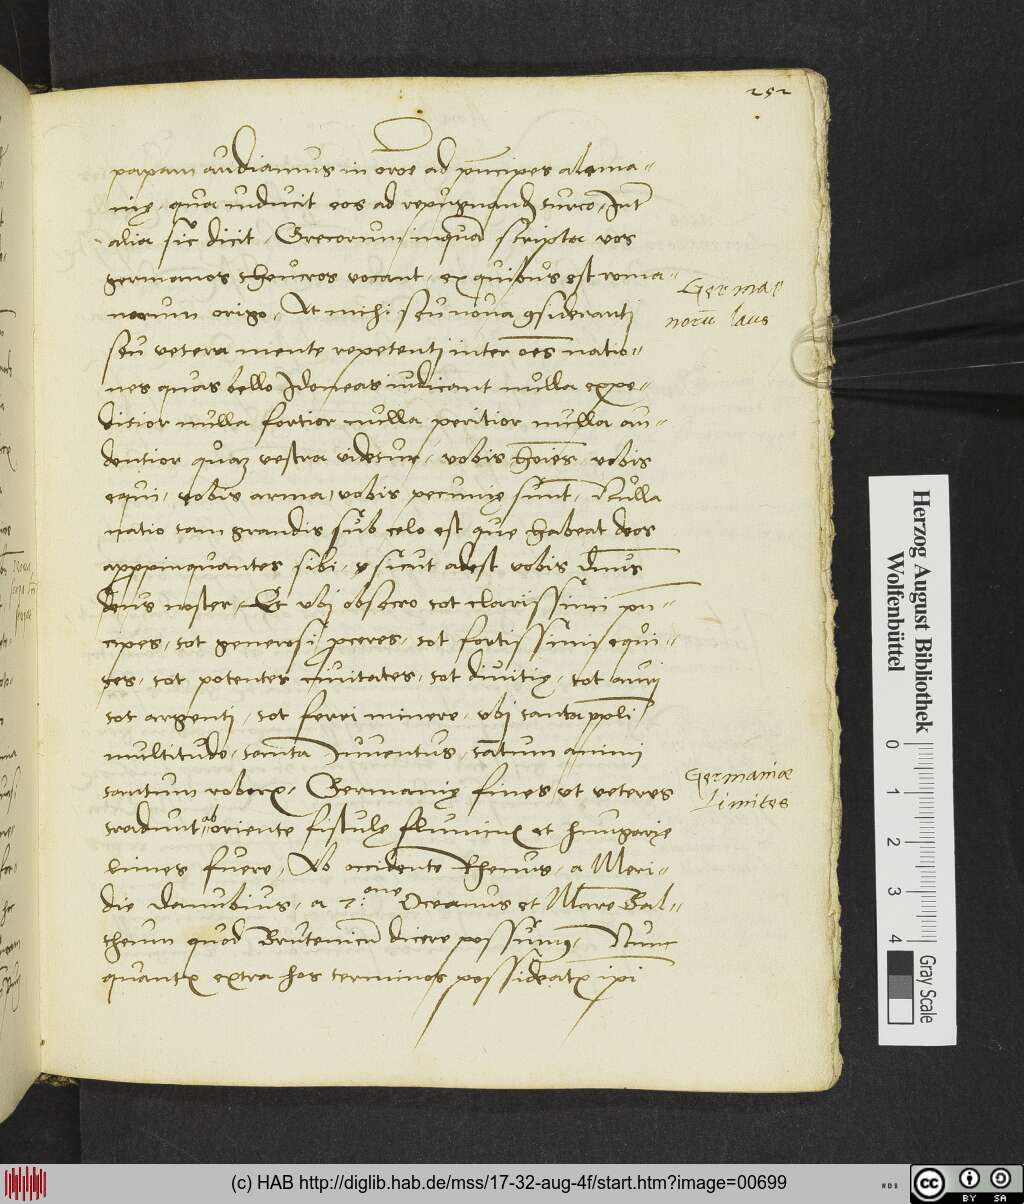 252
papam audiamus in oroe ad pncipes alema-
nię, qua inducit eos ad repugnand turco, Int
alia sic dicit, Grecorum inqua scripta vos
germanos theucros vocant, ex quibus est roma-
norum origo, At michi seu nova gsideranti
Germa-
norū laus
seu vetera mente repetenti inter oes natio-
nes quas bello Idoneas iudicant nulla expe-
ditior nulla fortior nulla peritior nulla au-
dentior quam vestra videtur, vobis hoies, vobis
equi, vobis arma, vobis pecunię sunt, Nulla
natio tam grandis sub celo est que habeat deos
appropinquantes sibi, sicut adest vobis dnus
deus noster, Et ubi obsecro tot clarissimi pn-
cipes, tot generosi pceres, tot fortissimi equi-
tes, tot potentes civitates, tot divitię, tot auri
tot argenti, tot ferri minere, ubi tanta ppli
multitudo, tanta Iuventus, tatum animi
tantum roboris, Germanię fines, ut veteres
Germaniæ
Limites
tradunt, ab oriente fistulę fluminis et hungarię
limes fuere, Ab occidente Rhenus, a Meri-
die Danubius, a 7.one Oceanus et Mare Bal-
theum quod Brutenicū dicere possumus, Nunc
quantum extra hos terminos possideatis ipi
Herzog August Bibliothek
Wolfenbüttel
0 1 2 3 4
Gray Scale
(c) HAB http://diglib.hab.de/mss/17-32-aug-4f/start.htm?image=00699
cc BY SA